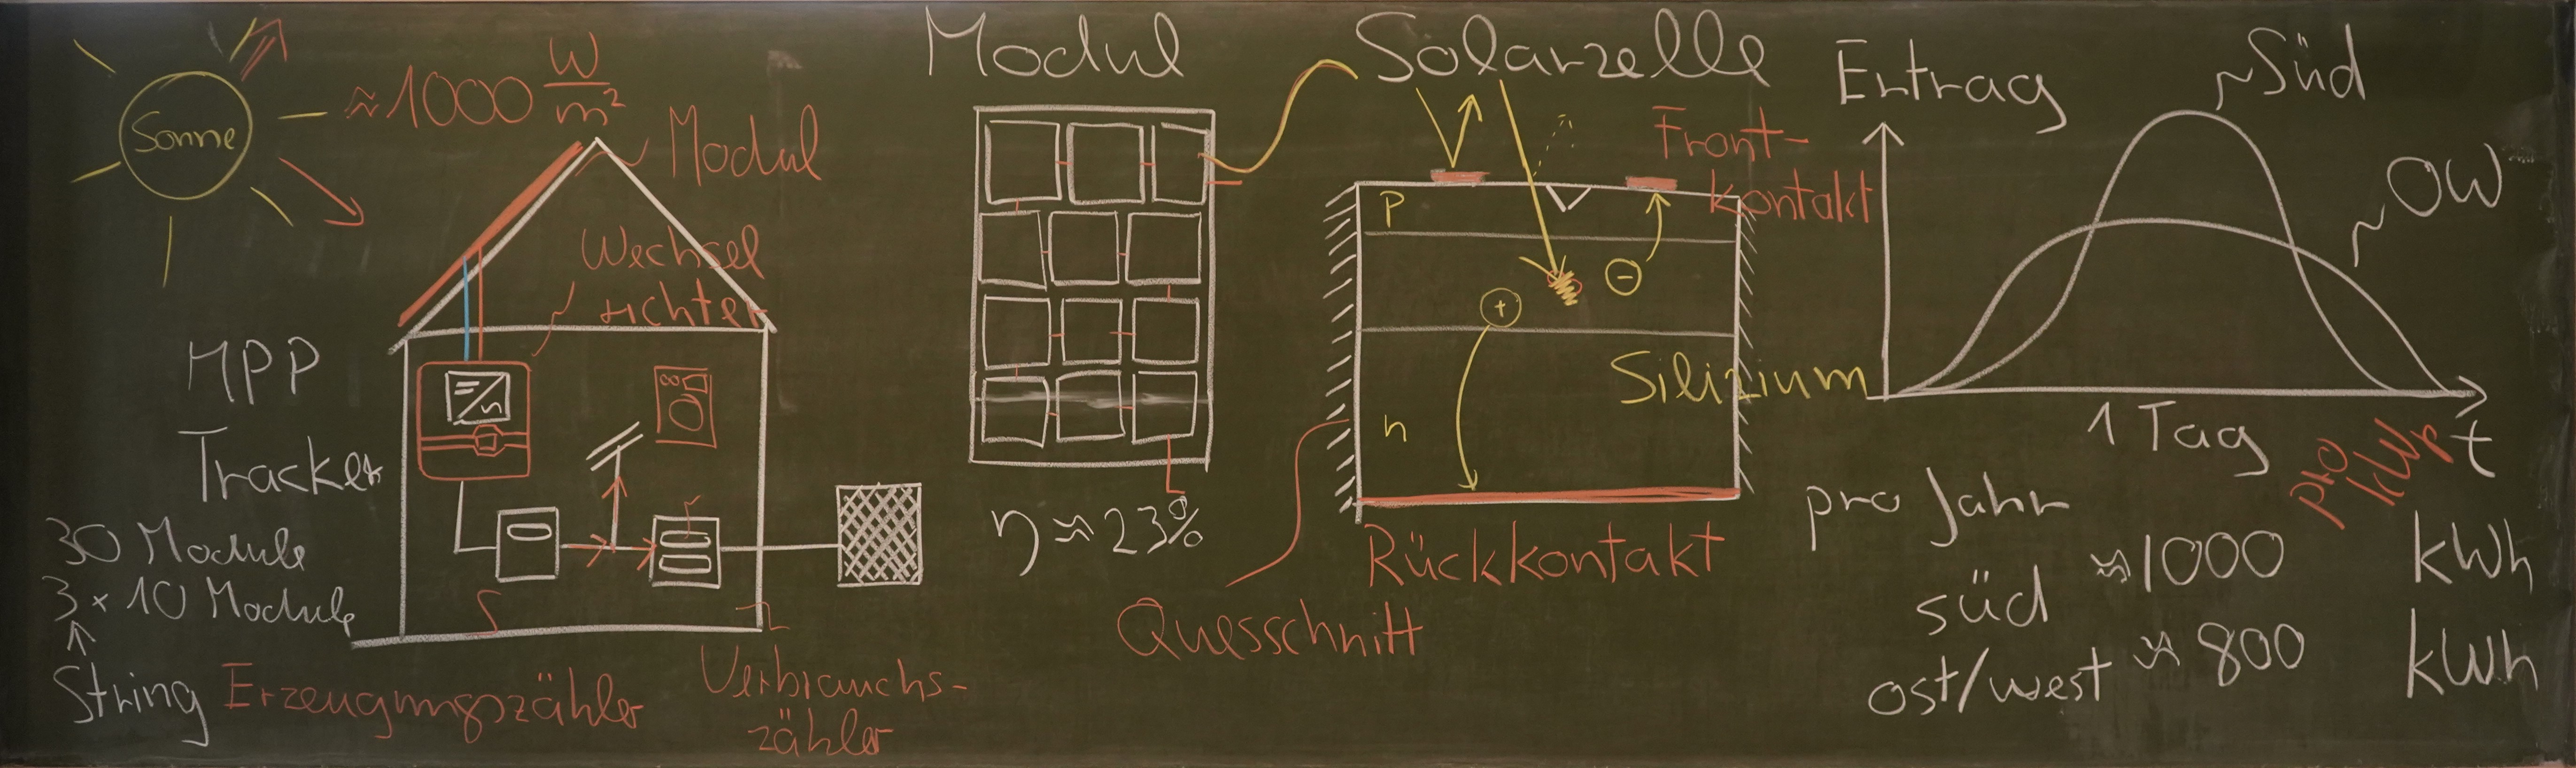 Sonne
≈1000 W/m²
Modul
Wechsel
richter
MPP
Tracker
30 Module
3 × 10 Module
String
Erzeugungszähler
Verbrauchs-
zähler
Modul
η ≈ 23%
Solarzelle
Front-
kontakt
p
+
-
Silizium
n
Rückkontakt
Querschnitt
Ertrag
~Süd
~OW
1 Tag
t
pro
kWp
pro Jahr
süd ≈1000 kWh
ost/west ≈ 800 kWh